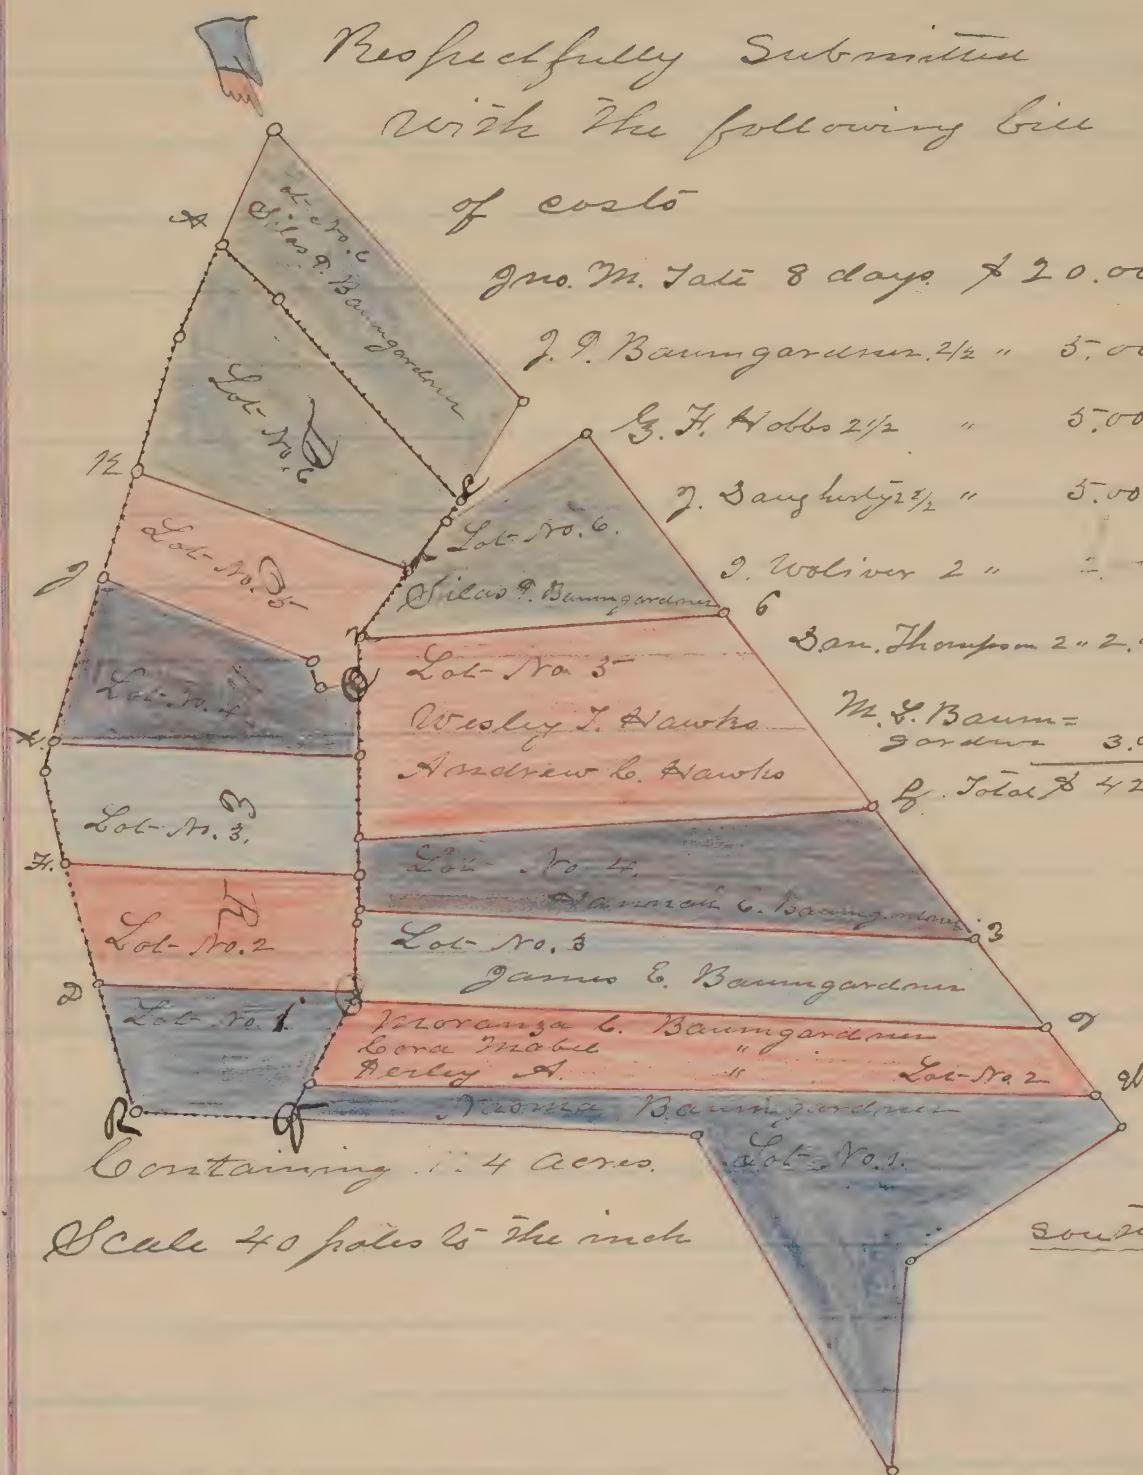 Respectfully Submitted
with the following bill
of costs
Jno. M. Tate 8 days. $ 20.00
J. P. Baumgardner. 2 1/2 " 5.00
G. H. Hobbs 2 1/2 " 5.00
J. Daugherty 2 1/2 " 5.00
I. Woliver 2 "
Dan. Thompson 2 " 2.
M. L. Baum=
gardner 3.
Total $ 42
Lot No. 6
Silas P. Baumgardner
A
Lot No. 6
K
Lot No. 6.
Silas P. Baumgardner
6
Lot No. 5
J
Lot No 5
Wesley T. Hawks
Andrew C. Hawks
Lot No. 4
Lot No. 3.
Lot No 4.
Hannah C. Baumgardner
3
H.
Lot No. 2
Lot No. 3
James E. Baumgardner
D
Lot No. 1.
Moranza C. Baumgardner
Cora Mabel "
Perley A. " Lot No. 2
R
Naoma Baumgardner
Lot No. 1.
Containing 4 acres.
Scale 40 poles to the inch